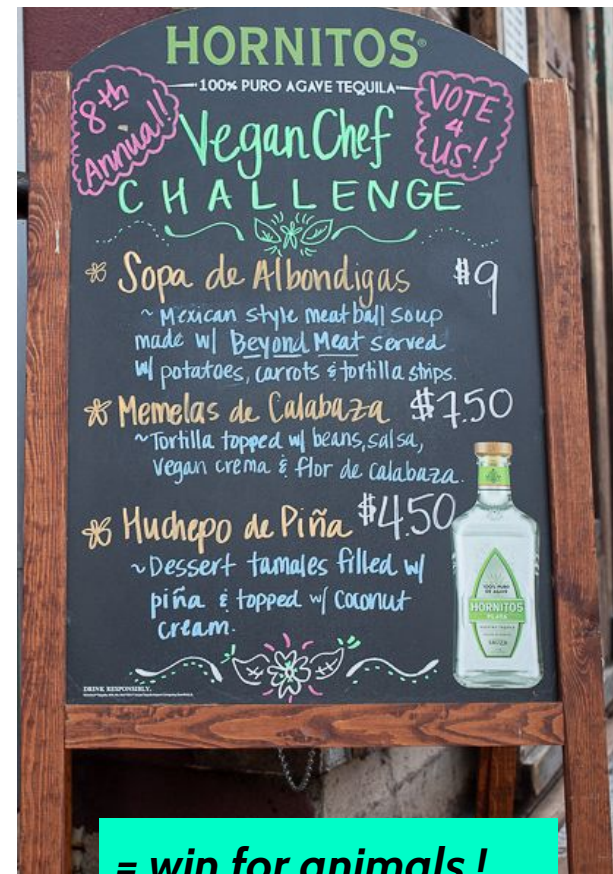 HORNITOS®
100% PURO AGAVE TEQUILA
8th
Annual!!
VOTE
4
US!
Vegan Chef
CHALLENGE
Sopa de Albondigas $9
~ Mexican style meatball soup
made w/ Beyond Meat served
w/ potatoes, carrots & tortilla strips.
Memelas de Calabaza $7.50
~Tortilla topped w/ beans, salsa,
vegan crema & flor de calabaza.
Huchepo de Piña $4.50
~Dessert tamales filled w/
piña & topped w/ coconut
cream.
100% PURO
DE AGAVE
HORNITOS
PLATA
SAUZA
DRINK RESPONSIBLY.
= win for animals!